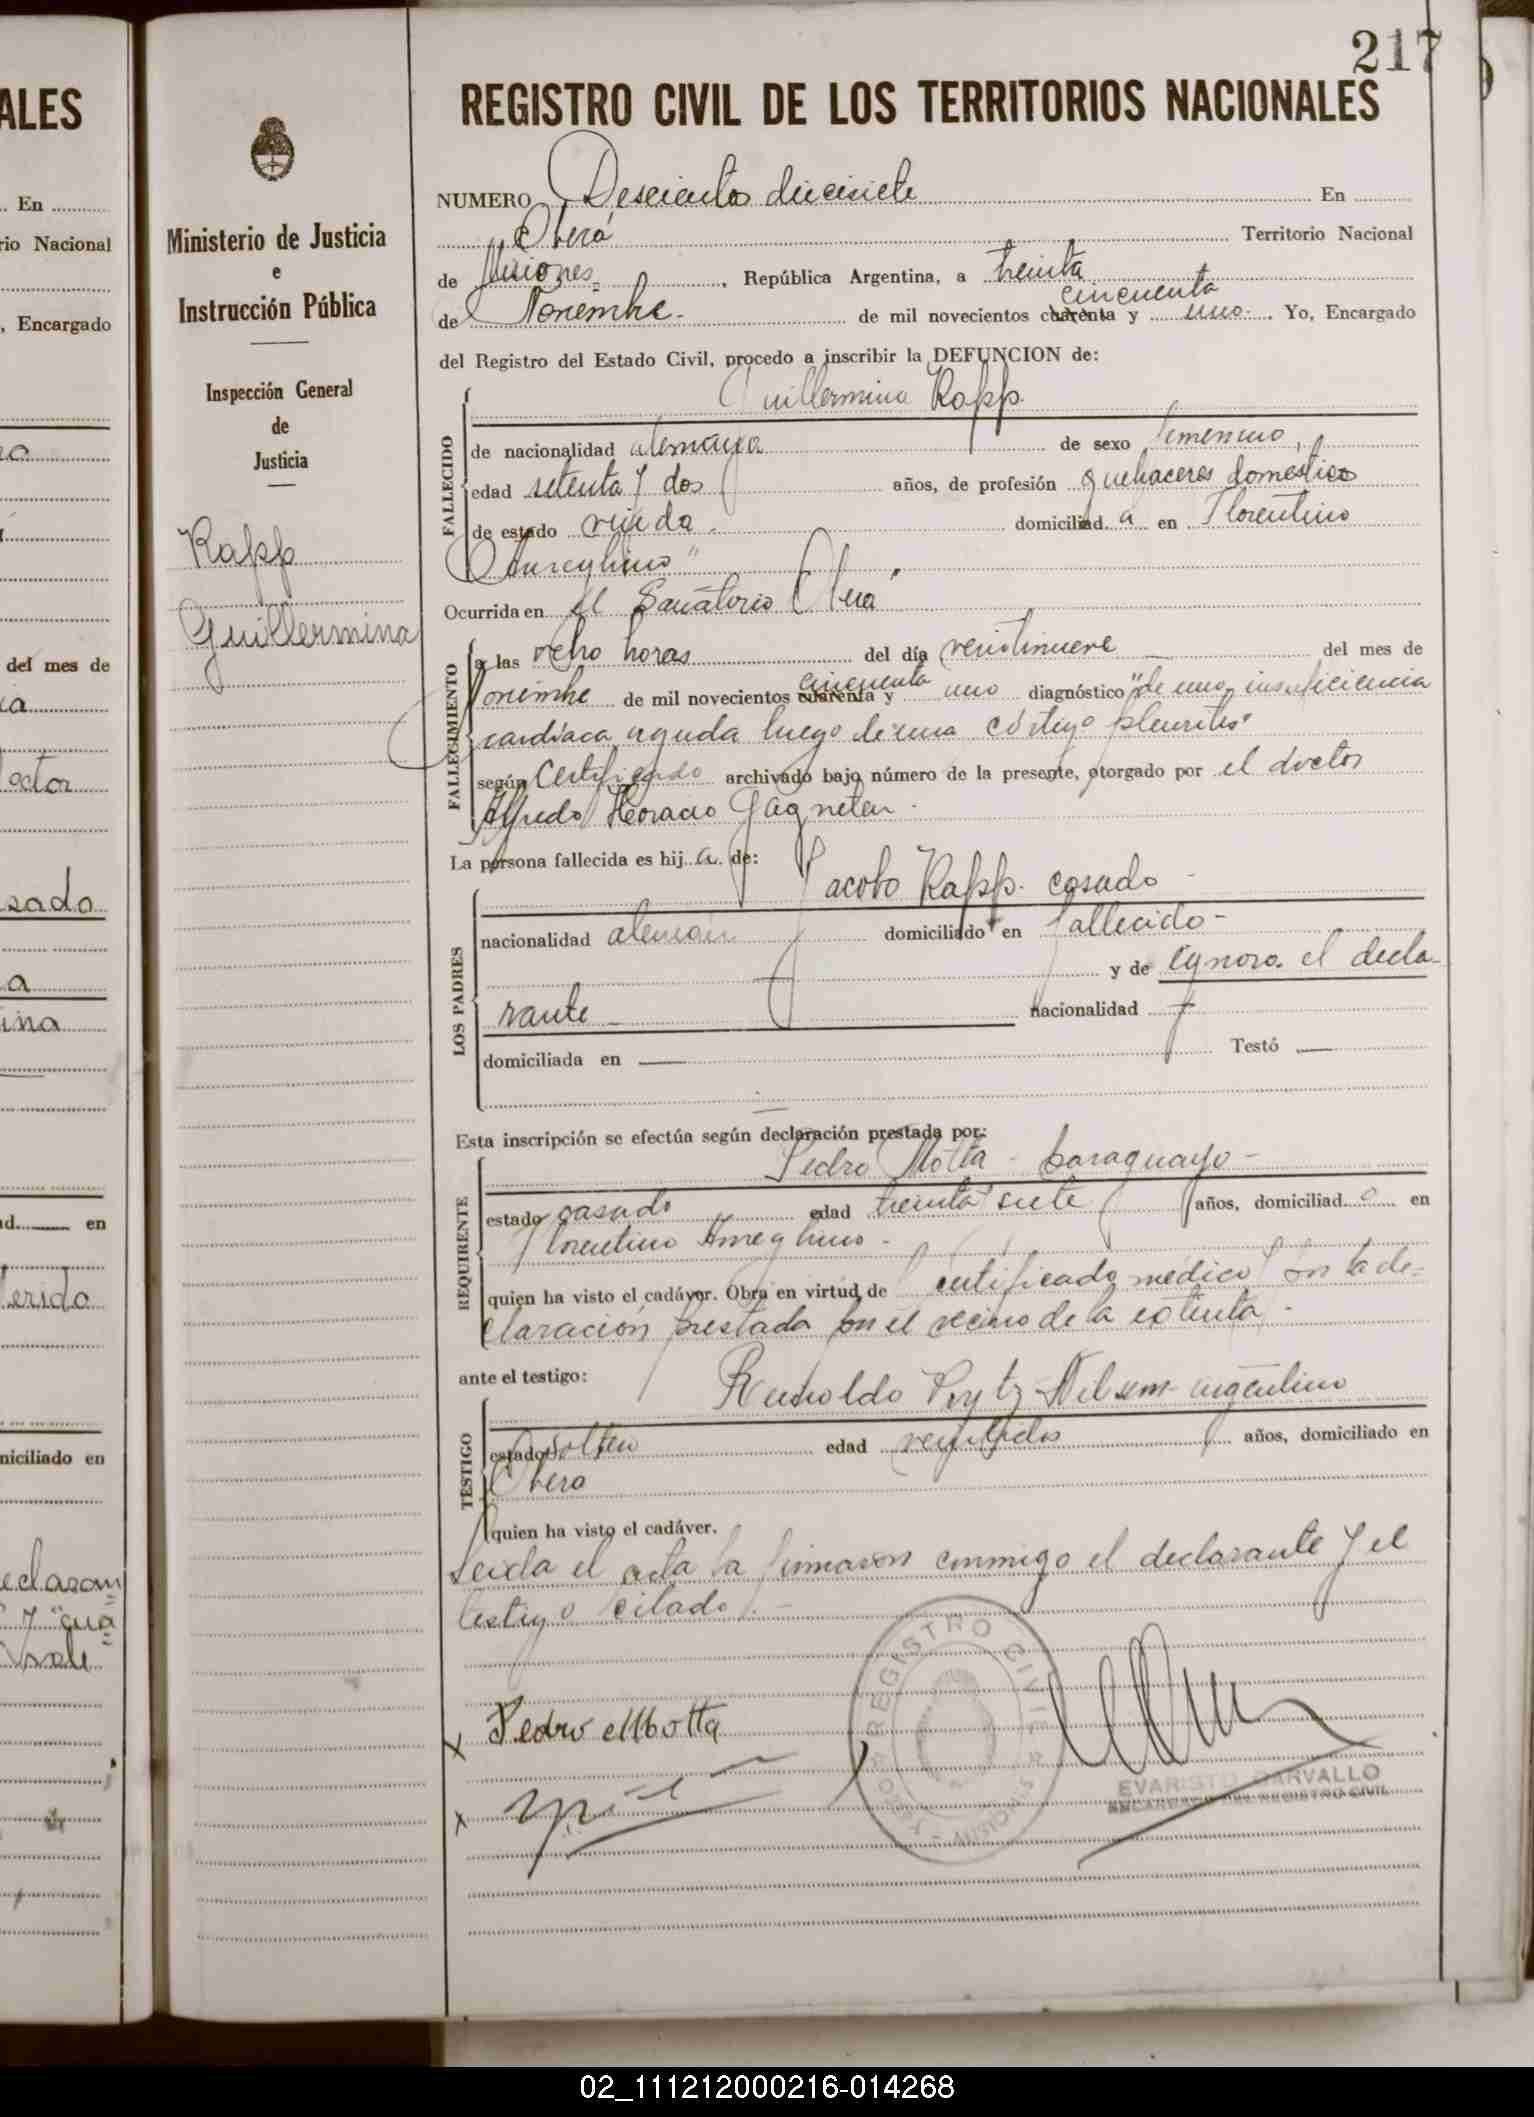 217
REGISTRO CIVIL DE LOS TERRITORIOS NACIONALES
NUMERO Doscientos diecisiete En
Oberá Territorio Nacional
de Misiones, República Argentina, a treinta
cincuenta
de Noviembre de mil novecientos cuarenta y uno. Yo, Encargado
del Registro del Estado Civil, procedo a inscribir la DEFUNCION de:
Guillermina Rapp
FALLECIDO
de nacionalidad alemana de sexo femenino,
edad setenta y dos años, de profesión quehaceres domestico
de estado viuda domiciliad a en Florentino
Ameghino"
Ocurrida en el Sanatorio Oberá
FALLECIMIENTO
a las ocho horas del día veintinueve del mes de
cincuenta
Noviembre de mil novecientos cuarenta y uno diagnóstico "de una insuficiencia
cardíaca aguda luego de una pleuritis"
según Certificado archivado bajo número de la presente, otorgado por el doctor
Alfredo Horacio Gagneten
La persona fallecida es hij a de:
Jacobo Rapp. casado
LOS PADRES
nacionalidad alemán domiciliado en fallecido -
y de ignora el decla-
rante nacionalidad
domiciliada en — Testó —
Esta inscripción se efectúa según declaración prestada por:
Pedro Motta - paraguayo -
REQUIRENTE
estado casado edad treinta siete años, domiciliad o en
Florentino Ameghino -
quien ha visto el cadáver. Obra en virtud de certificado medico la de-
claración prestada el vecino de la
ante el testigo:
argentino
TESTIGO
estado soltero edad veintidos años, domiciliado en
Obera
quien ha visto el cadáver.
Leida el acta la firmaron conmigo el declarante y el
testigo citado. -
x Pedro Motta
x
REGISTRO CIVIL
MISIONES
EVARISTO CARVALLO
ENCARGADO DEL REGISTRO CIVIL
Ministerio de Justicia
e
Instrucción Pública
Inspección General
de
Justicia
Rapp
Guillermina
ALES
En
rio Nacional
, Encargado
del mes de
en
niciliado en
02_111212000216-014268